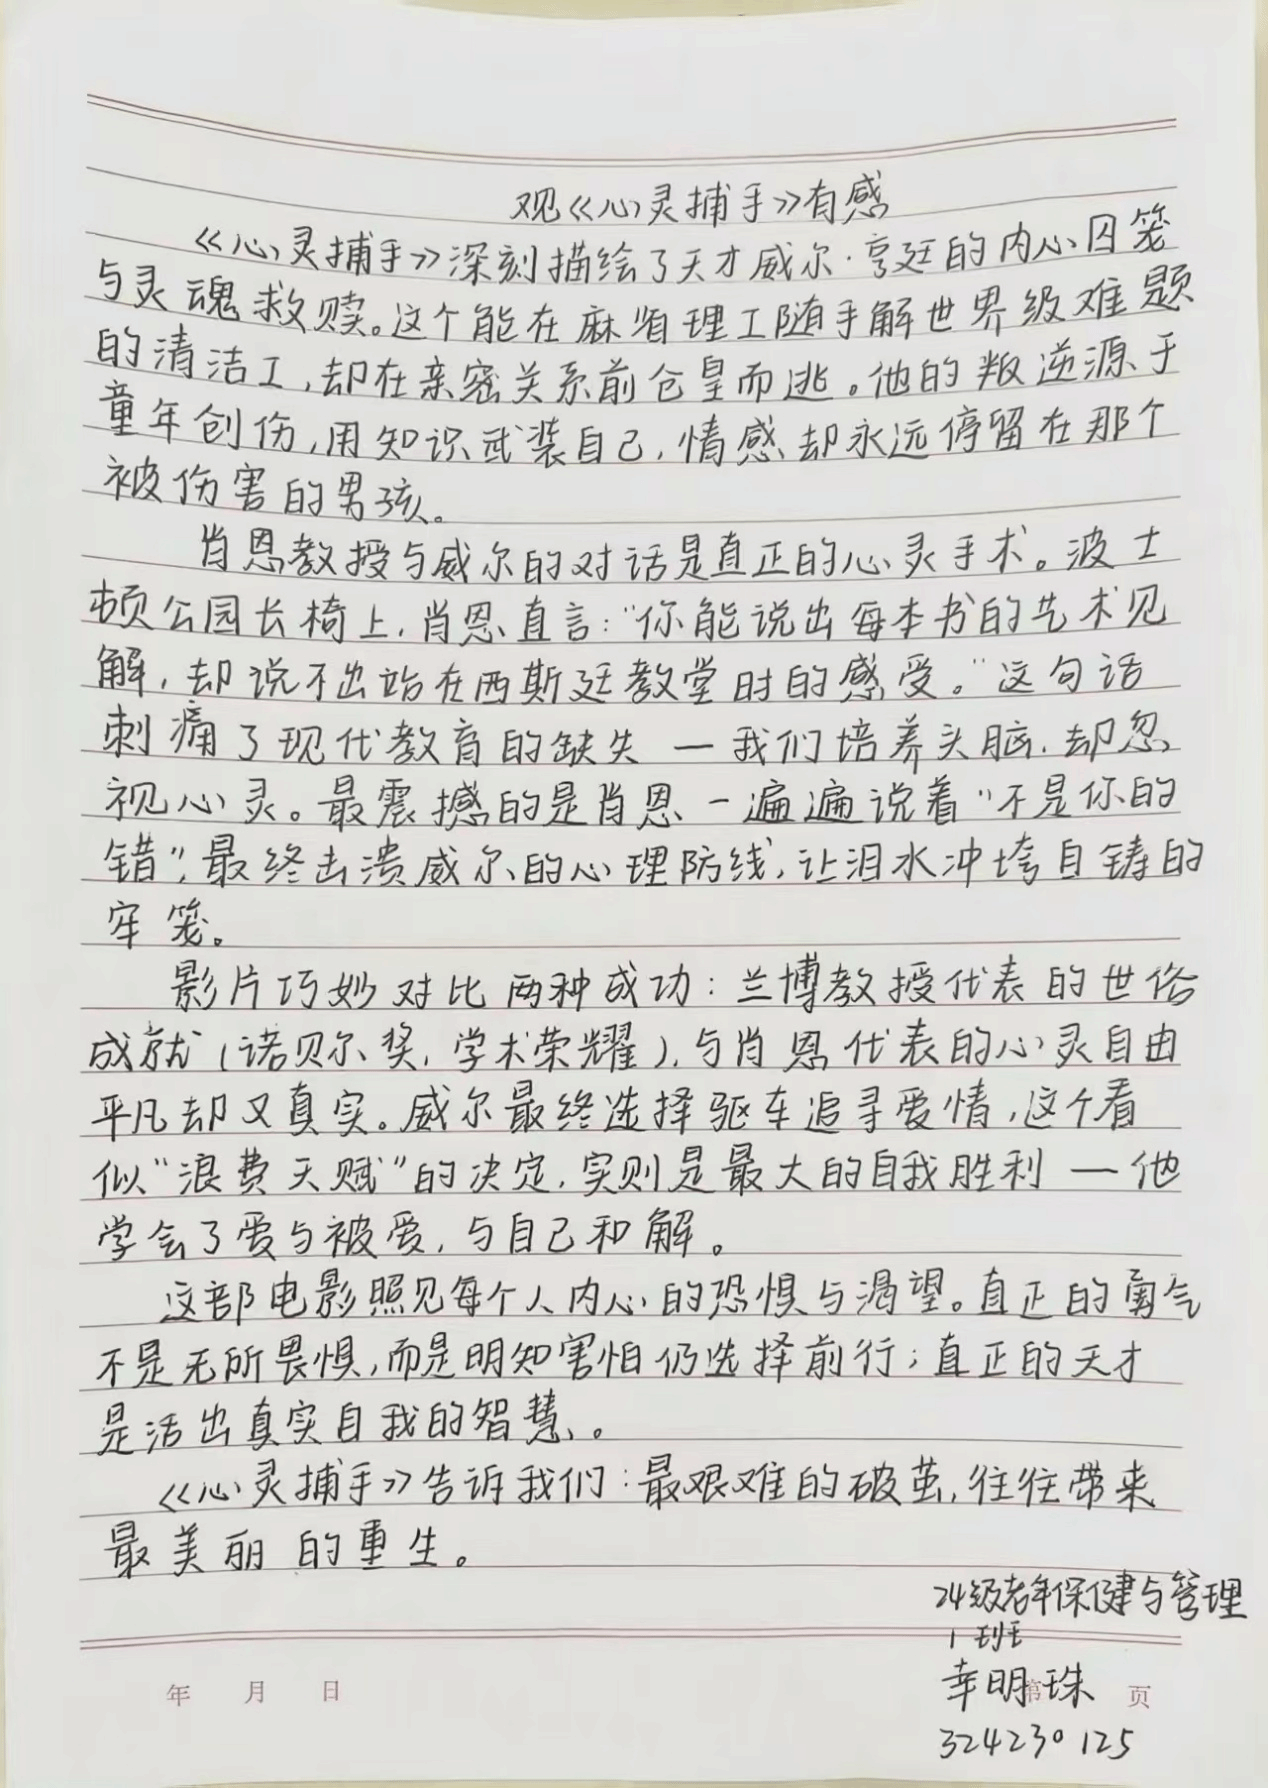 观《心灵捕手》有感
《心灵捕手》深刻描绘了天才威尔·亨廷的内心囚笼
与灵魂救赎。这个能在麻省理工随手解世界级难题
的清洁工,却在亲密关系前仓皇而逃。他的叛逆源于
童年创伤,用知识武装自己,情感却永远停留在那个
被伤害的男孩。
肖恩教授与威尔的对话是直正的心灵手术。波士
顿公园长椅上,肖恩直言:“你能说出每本书的艺术见
解,却说不出站在西斯廷教堂时的感受。”这句话
刺痛了现代教育的缺失—我们培养头脑,却忽
视心灵。最震撼的是肖恩一遍遍说着“不是你的
错”,最终击溃威尔的心理防线,让泪水冲垮自铸的
牢笼。
影片巧妙对比两种成功:兰博教授代表的世俗
成就(诺贝尔奖,学术荣耀),与肖恩代表的心灵自由
平凡却又真实。威尔最终选择驱车追寻爱情,这个看
似“浪费天赋”的决定,实则是最大的自我胜利—他
学会了爱与被爱,与自己和解。
这部电影照见每个人内心的恐惧与渴望。直正的勇气
不是无所畏惧,而是明知害怕仍选择前行;直正的天才
是活出真实自我的智慧。
《心灵捕手》告诉我们:最艰难的破茧,往往带来
最美丽的重生。
24级老年保健与管理
1班
年 月 日 第 页
幸明珠
324230125